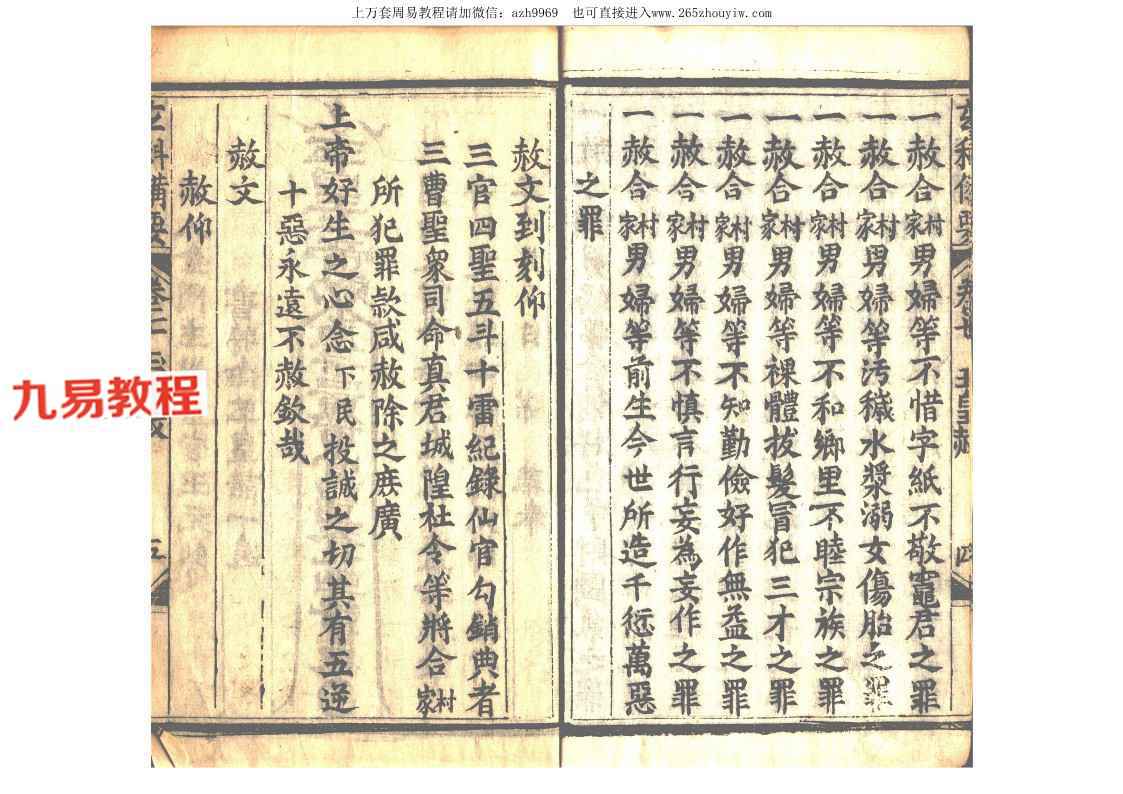 上万套周易教程请加微信：azh9969 也可直接进入www.265zhouyiw.com
四
一赦合村家男婦等不惜字紙不敬竈君之罪
一赦合村家男婦等汚穢水漿溺女傷胎之罪
一赦合村家男婦等不和鄉里不睦宗族之罪
一赦合村家男婦等裸體拔髮冒犯三才之罪
一赦合村家男婦等不知勤儉好作無益之罪
一赦合村家男婦等不慎言行妄為妄作之罪
一赦合村家男婦等前生今世所造千愆萬惡
之罪
赦文到刻仰
三官四聖五斗十雷紀錄仙官勾銷典者
三曹聖衆司命真君城隍社令等將合村家
所犯罪款咸赦除之庶廣
上帝好生之心念下民投誠之切其有五逆
十惡永遠不赦欽哉
赦文
赦仰
五
九易教程